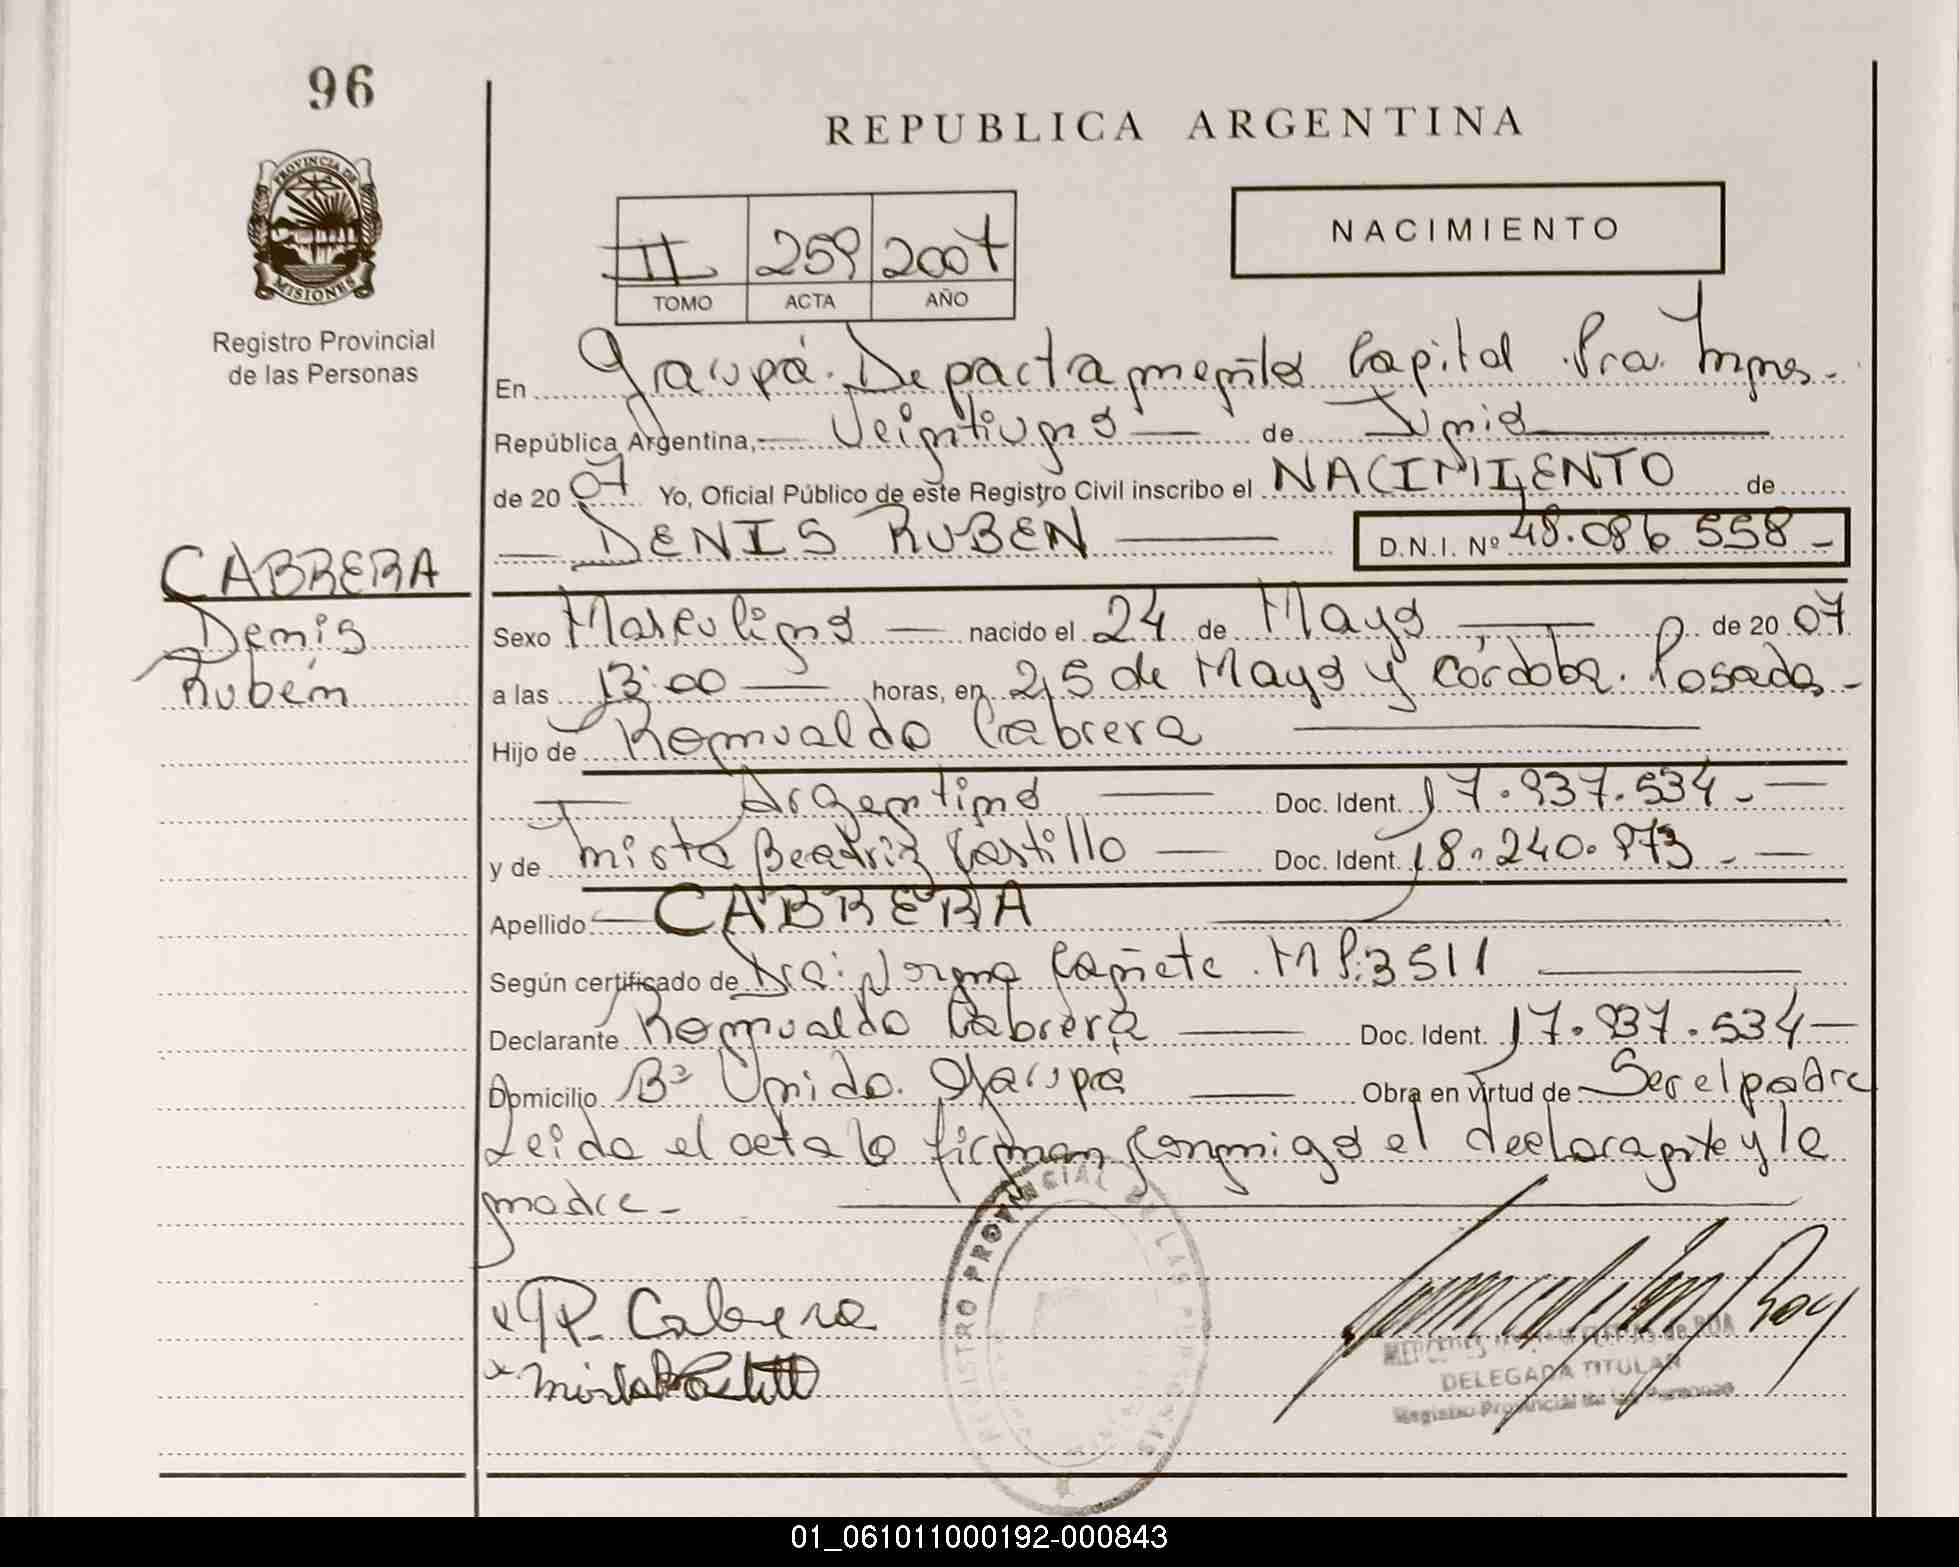 96
REPUBLICA ARGENTINA
PROVINCIA DE
MISIONES
Registro Provincial
de las Personas
NACIMIENTO
II 259 2007
TOMO ACTA AÑO
En Garupá. Departamento Capital Pcia. Mnes.-
República Argentina, Veintiuno de Junio
de 2007 Yo, Oficial Público de este Registro Civil inscribo el NACIMIENTO de
DENIS RUBEN D.N.I. Nº 48.086 558-
CABRERA
Denis
Rubén
Sexo Masculino nacido el 24 de Mayo de 2007
a las 13:00 horas, en 25 de Mayo y Córdoba. Posadas-
Hijo de Romualdo Cabrera
Argentino Doc. Ident. 17.937.534.-
y de Mirta Beatriz Castillo Doc. Ident. 18.240.973.-
Apellido CABRERA
Según certificado de Dra: Norma Cañete. M P:3511
Declarante Romualdo Cabrera Doc. Ident. 17.937.534-
Domicilio Bº Unido. Garupá Obra en virtud de Ser el padre
Leida el acta la firman conmigo el declarante y la
madre-
R. Cabrera
Mirta B Castillo
REGISTRO PROVINCIAL DE LAS PERSONAS
DELEGADA TITULAR
Registro Provincial de las Personas
01_061011000192-000843